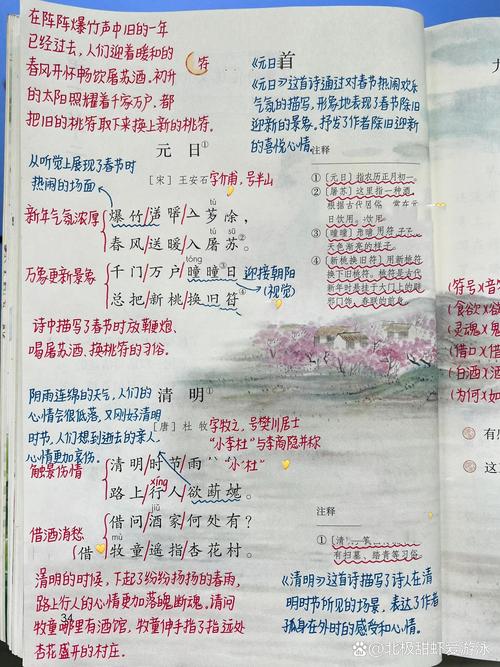 在阵阵爆竹声中旧的一年
已经过去，人们迎着暖和的
春风开怀畅饮屠苏酒。初升
的太阳照耀着千家万户，都
把旧的桃符取下来换上新的桃符。
符
首
《元日》
《元日》这首诗通过对春节热闹欢乐
气氛的描写，形象地表现了春节除旧
迎新的景象。抒发了作者除旧迎新
的喜悦心情。
元日①
从听觉上展现了春节时
热闹的场面
［宋］王安石
字介甫，号半山
新年气氛浓厚
爆竹/声中/入岁除，
春风送暖/入屠苏。②
万象更新景象
千门/万户/曈曈③日
迎接朝阳
（视觉）
总把/新桃/换旧符④
诗中描写了春节时放鞭炮、
喝屠苏酒、换桃符的习俗。
注释
①［元日］指农历正月初一。
②［屠苏］这里指一种酒，
根据古代
元日饮用。
③［曈曈］
天色渐亮的样子。
④［新桃换旧符］用新桃符
换下旧桃符。桃符是古代
新年时挂于大门上的辟
邪门饰，春联的前身。
清明①
阴雨连绵的天气，人们的
心情会很低落，又刚好清明
时节，人们想到逝去的亲人，
心情更加哀伤。
［唐］杜牧
字牧之，号樊川居士
“小李杜”与李商隐并称
“小杜”
触景伤情
清明/时节/雨
xíng
路上/行人/欲断魂。
jiǔ
借问/酒家/何处有？
借酒消愁
（借）
mù tóng
牧童/遥指/杏花村。
清明的时候，下起了纷纷扬扬的春雨，
路上行人的心情更加落魄断魂。请问
牧童哪里有酒馆，牧童伸手指了指远处
杏花盛开的村庄。
34
注释
①［清
有扫墓、踏青等习俗。
《清明》这首诗描写了诗人在清
明时节所见的场景，表达了作者
孤身在外时的感受和心情。
（符号）×（音
（食欲）×（欲
（灵魂）×（鬼
（借口）×（借
（白酒）×（酒
（为何）×（如
有
这
北极甜虾爱游泳